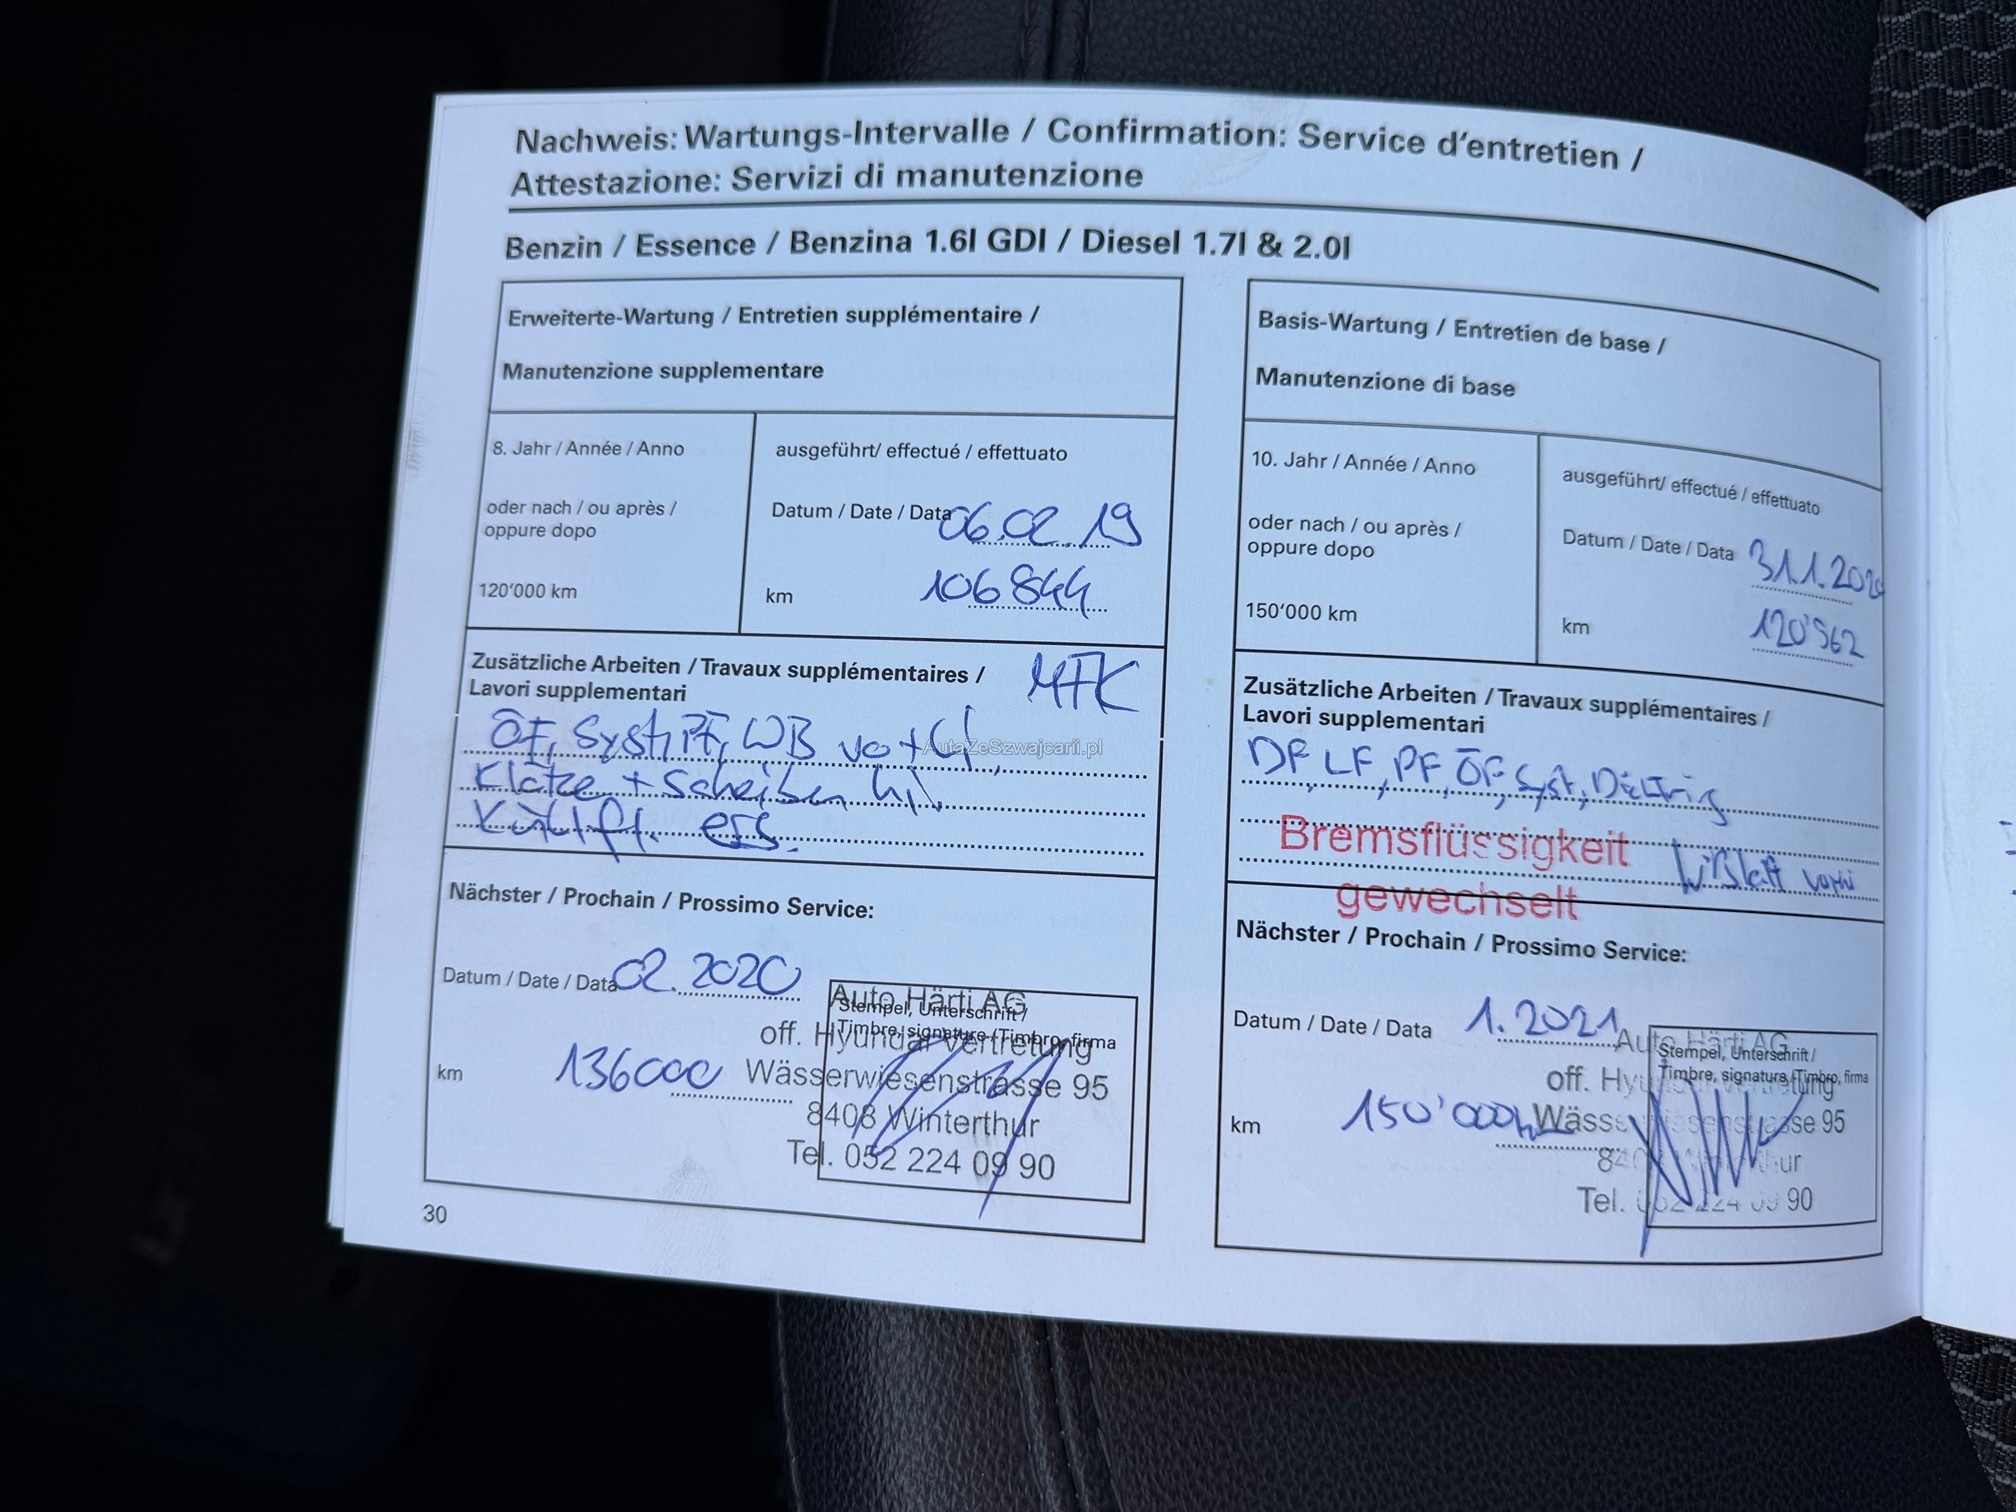 Nachweis: Wartungs-Intervalle / Confirmation: Service d'entretien /
Attestazione: Servizi di manutenzione
Benzin / Essence / Benzina 1.6l GDI / Diesel 1.7l & 2.0l
Erweiterte-Wartung / Entretien supplémentaire /
Manutenzione supplementare
8. Jahr / Année / Anno
oder nach / ou après /
oppure dopo
120'000 km
ausgeführt/ effectué / effettuato
Datum / Date / Data 06.02.19
km 106844
Zusätzliche Arbeiten / Travaux supplémentaires / MFK
Lavori supplementari
ÖF, Syst, PF, WB
Klötze + Scheiben hi.
Kühlfl. ers.
Nächster / Prochain / Prossimo Service:
Datum / Date / Data 02.2020
km 136000
Stempel, Unterschrift /
Timbre, signature / Timbro, firma
Auto Härti AG
off. Hyundai Vertretung
Wässerwiesenstrasse 95
8408 Winterthur
Tel. 052 224 09 90
30
Basis-Wartung / Entretien de base /
Manutenzione di base
10. Jahr / Année / Anno
oder nach / ou après /
oppure dopo
150'000 km
ausgeführt/ effectué / effettuato
Datum / Date / Data 31.1.2020
km 120'562
Zusätzliche Arbeiten / Travaux supplémentaires /
Lavori supplementari
DF, LF, PF, ÖF, Syst,
Bremsflüssigkeit
gewechselt
Nächster / Prochain / Prossimo Service:
Datum / Date / Data 1.2021
km 150'000
Stempel, Unterschrift /
Timbre, signature /Timbro, firma
Auto Härti AG
off. Hyundai Vertretung
Wässerwiesenstrasse 95
8408 Winterthur
Tel. 052 224 09 90
AutaZeSzwajcarii.pl